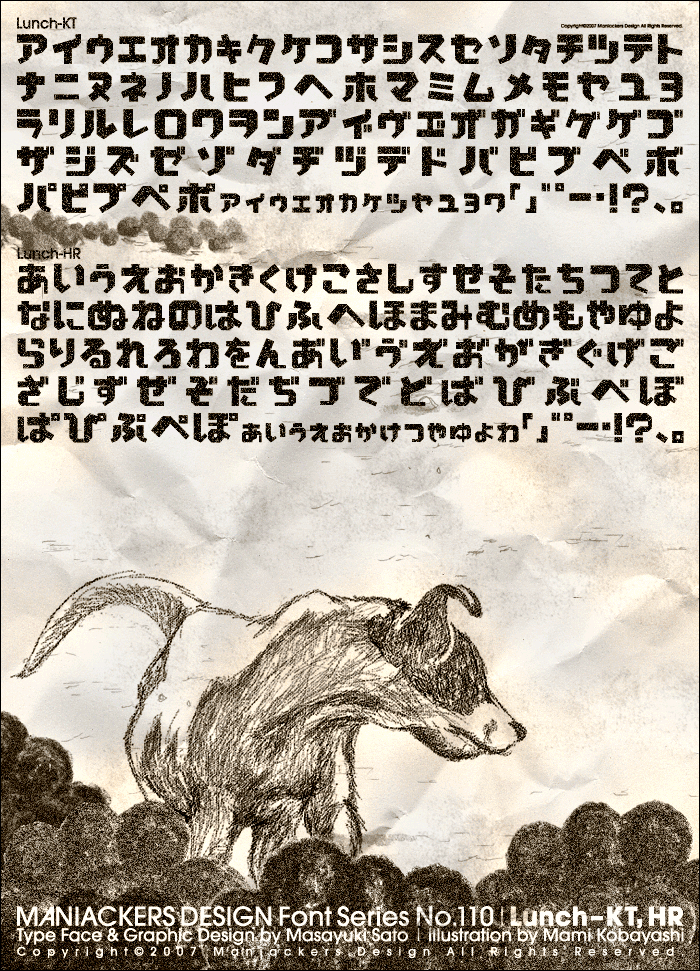 Lunch-KT
Copyright©2007 Maniackers Design All Rights Reserved.
アイウエオカキクケコサシスセソタチツテト
ナニヌネノハヒフヘホマミムメモヤユヨ
ラリルレロワヲンアィヴエオガギグゲゴ
ザジズゼゾダヂヅデドバビブベボ
パピプペポアイウエオカケツヤユヨワ「」゛゜ー・!?、。
Lunch-HR
あいうえおかきくけこさしすせそたちつてと
なにぬねのはひふへほまみむめもやゆよ
らりるれろわをんあいう゛えおがぎぐげご
ざじずぜぞだぢづでどばびぶべぼ
ぱぴぷぺぽあいうえおかけつやゆよわ「」゛゜ー・!?、。
MANIACKERS DESIGN Font Series No.110 | Lunch-KT, HR
Type Face & Graphic Design by Masayuki Sato | illustration by Mami Kobayashi
Copyright©2007 Maniackers Design All Rights Reserved